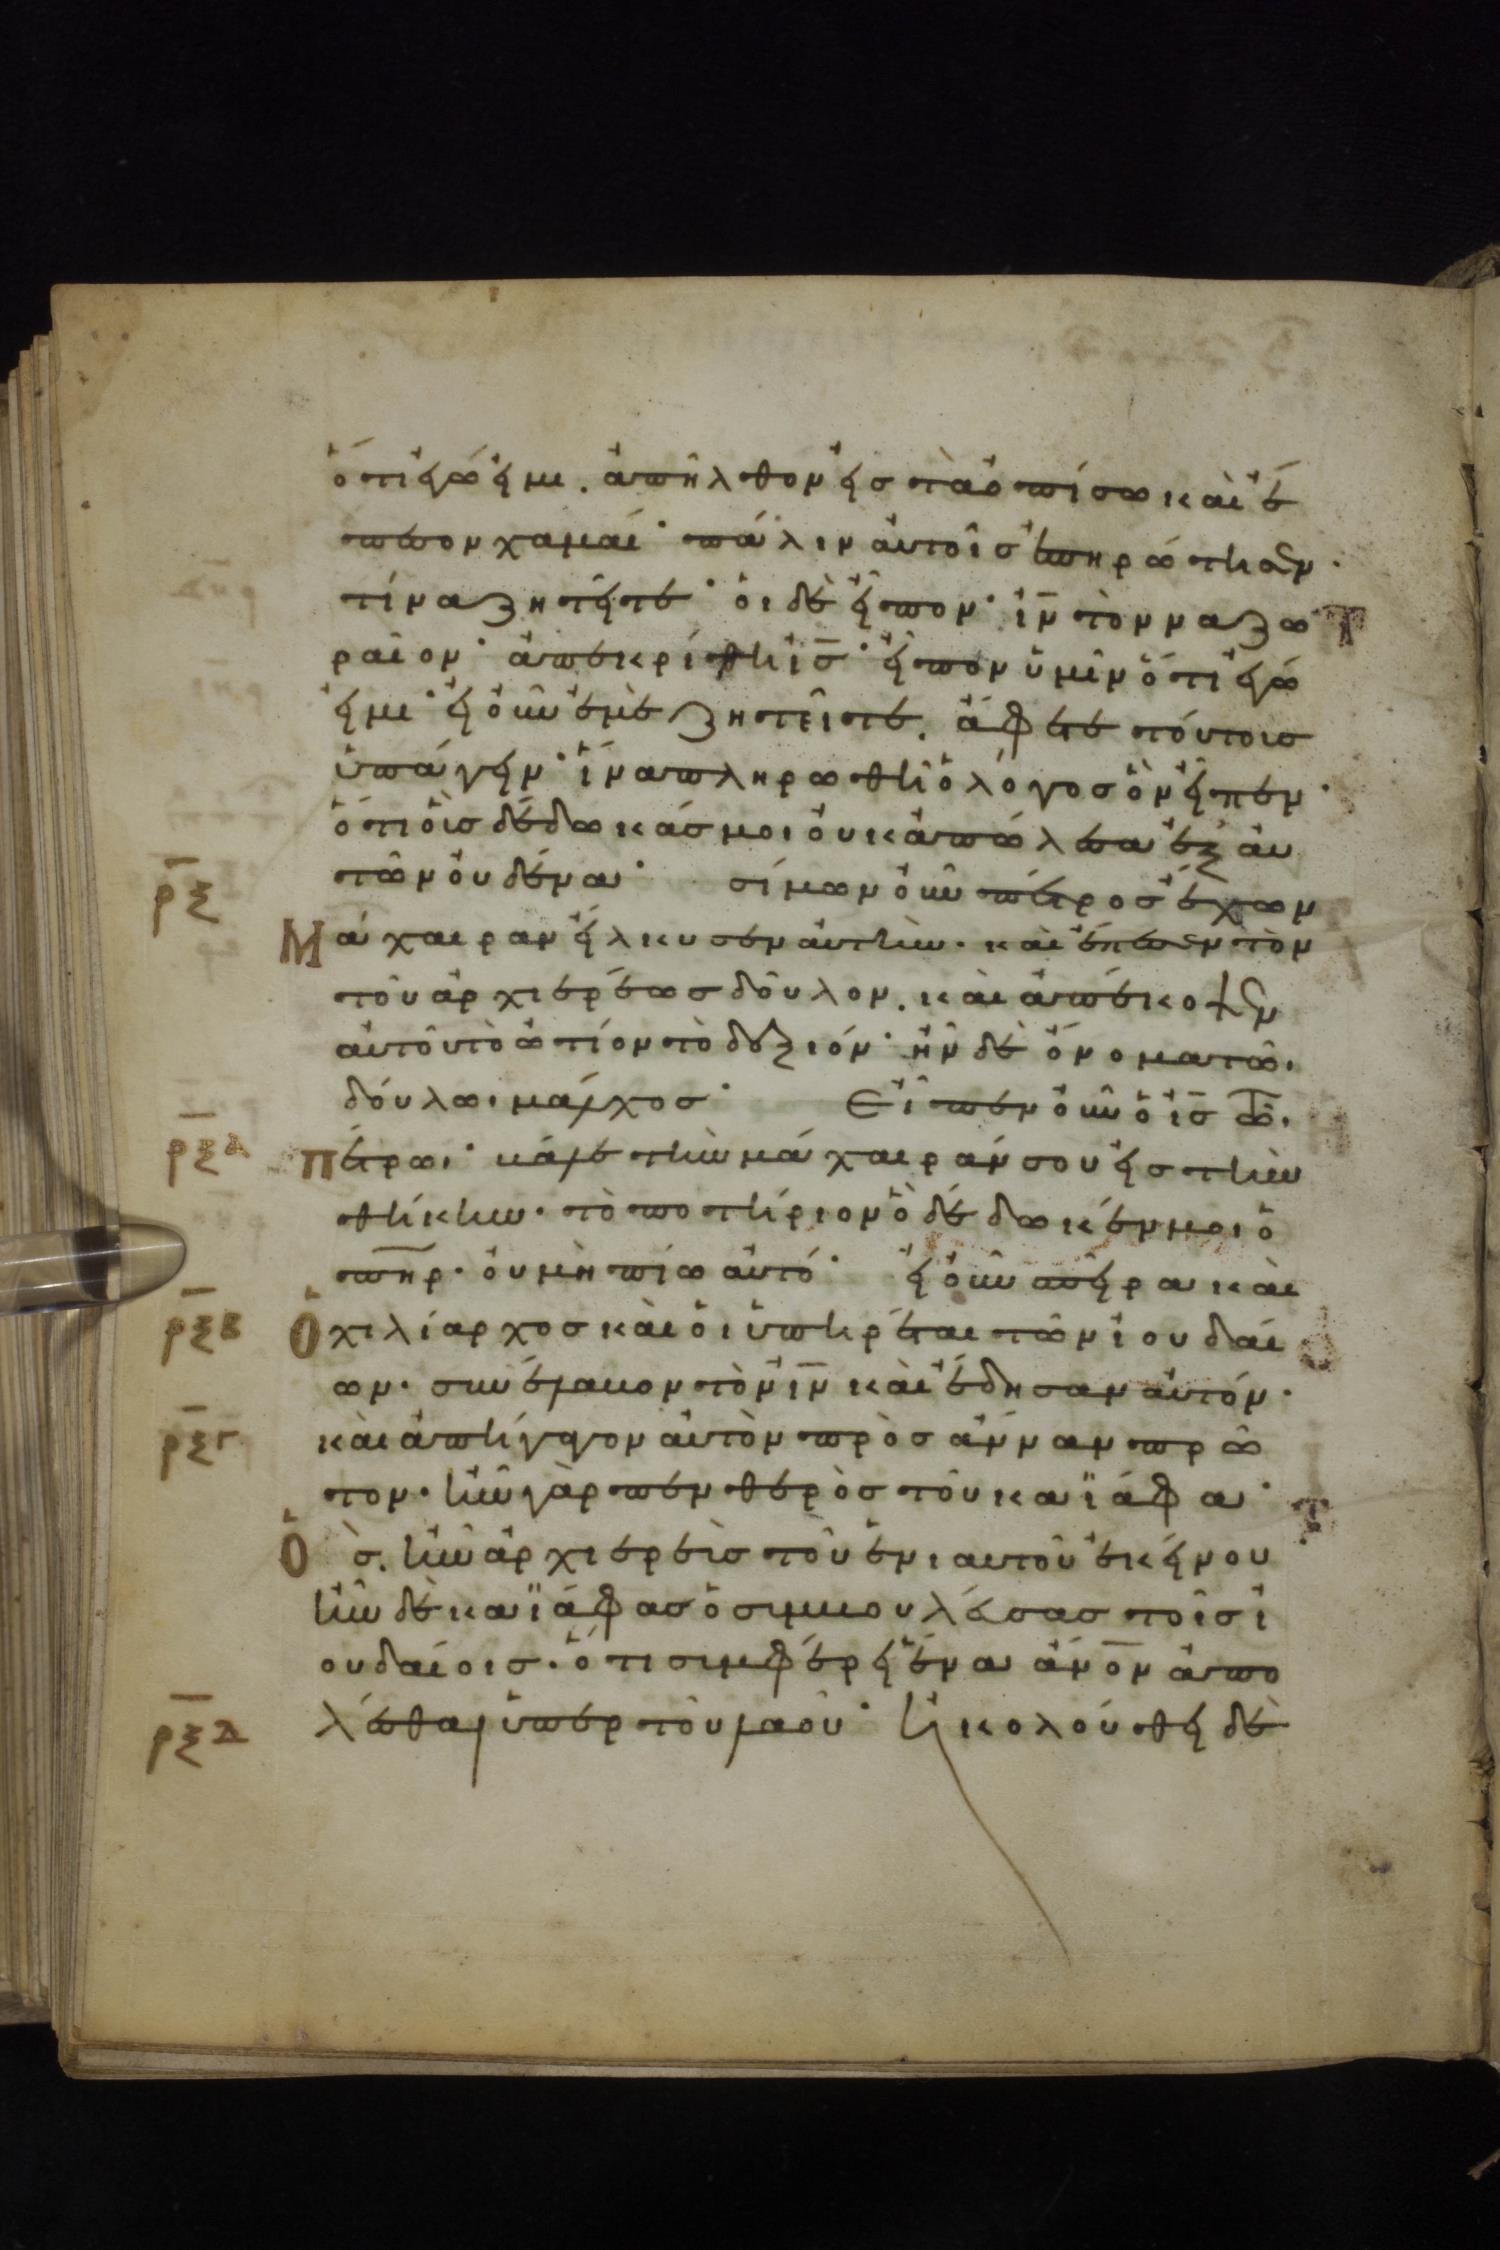 ὅτι ἐγώ εἰμι. ἀπῆλθον εἰς τὰ ὀπίσω καὶ ἔ
πεσον χαμαί· πάλιν αὐτοῖς ἐπηρώτησεν·
τίνα ζητεῖτε· οἱ δὲ εἶπον· ἰν̅ τὸν ναζω
ραῖον· ἀπεκρίθη ἰς̅· εἶπον ὑμῖν ὅτι ἐγώ
εἰμι· εἰ οὖν ἐμὲ ζητεῖτε. ἄφετε τούτους
ὑπάγειν· ἵνα πληρωθῆ ὁ λόγος ὃν εἶπεν·
ὅτι οὓς δέδωκάς μοι οὐκ ἀπώλεσα ἐξ αὐ
τῶν οὐδένα· σίμων οὖν πέτρος ἔχων
ρ̅ξ̅
Μάχαιραν εἵλκυσεν αὐτὴν. καὶ ἔπεσεν τὸν
τοῦ ἀρχιερέως δοῦλον. καὶ ἀπέκοψεν
αὐτοῦ τὸ ὠτίον τὸ δεξιόν· ἦν δὲ ὄνομα τῶι
δούλωι μάλχος· Εἶπεν οὖν ὁ ἰς̅ τῶι
ρ̅ξ̅α
πέτρωι· βάλε τὴν μάχαιράν σου εἰς τὴν
θήκην. τὸ ποτήριον ὃ δέδωκέν μοι ὁ
πηρ̅. οὐ μὴ πίω αὐτό· εἰ οὖν σπεῖρα καὶ
ρ̅ξ̅β
Ὁ χιλίαρχος καὶ οἱ ὑπηρέται τῶν ἰουδαί
ων. συνέλαβον τὸν ἰν̅ καὶ ἔδησαν αὐτόν·
ρ̅ξ̅γ
καὶ ἀπήγαγον αὐτὸν πρὸς ἄνναν πρῶ
τον. ἦν γὰρ πενθερὸς τοῦ καϊάφα·
Ὃς. ἦν ἀρχιερεὺς τοῦ ἐνιαυτοῦ ἐκείνου
ἦν δὲ καϊάφας ὁ συμβουλεύσας τοῖς ἰ
ουδαίοις. ὅτι συμφέρει ἕνα ἄν̅ον̅ ἀπο
λέσθαι ὑπὲρ τοῦ λαοῦ· ἠκολούθει δὲ
ρ̅ξ̅δ